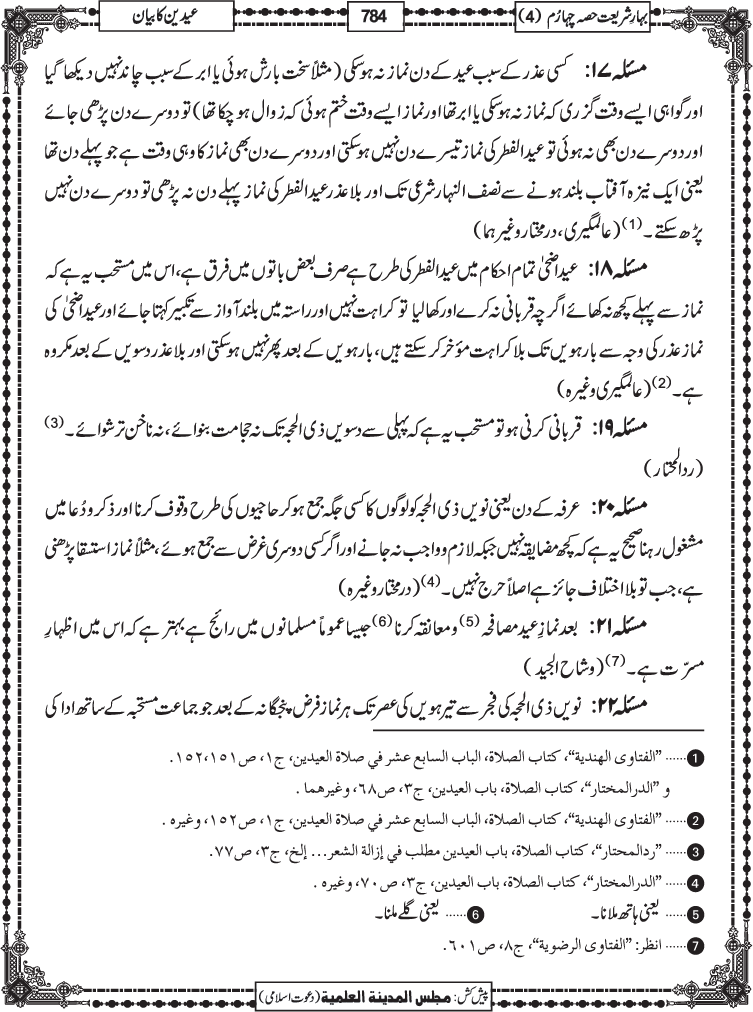 بہار شریعت حصہ چہارم (4)
784
عیدین کا بیان
مسئلہ ۱۷: کسی عذر کے سبب عید کے دن نماز نہ ہو سکی (مثلاً سخت بارش ہوئی یا ابر کے سبب چاند نہیں دیکھا گیا
اور گواہی ایسے وقت گزری کہ نماز نہ ہو سکی یا ابر تھا اور نماز ایسے وقت ختم ہوئی کہ زوال ہو چکا تھا) تو دوسرے دن پڑھی جائے
اور دوسرے دن بھی نہ ہوئی تو عیدالفطر کی نماز تیسرے دن نہیں ہو سکتی اور دوسرے دن بھی نماز کا وہی وقت ہے جو پہلے دن تھا
یعنی ایک نیزہ آفتاب بلند ہونے سے نصف النہار شرعی تک اور بلا عذر عیدالفطر کی نماز پہلے دن نہ پڑھی تو دوسرے دن نہیں
پڑھ سکتے۔ (1) (عالمگیری، درمختار وغیرہما)
مسئلہ ۱۸: عیداضحیٰ تمام احکام میں عیدالفطر کی طرح ہے صرف بعض باتوں میں فرق ہے، اس میں مستحب یہ ہے کہ
نماز سے پہلے کچھ نہ کھائے اگرچہ قربانی نہ کرے اور کھا لیا تو کراہت نہیں اور راستہ میں بلند آواز سے تکبیر کہتا جائے اور عیداضحیٰ کی
نماز عذر کی وجہ سے بارہویں تک بلا کراہت مؤخر کر سکتے ہیں، بارہویں کے بعد پھر نہیں ہو سکتی اور بلا عذر دسویں کے بعد مکروہ
ہے۔ (2) (عالمگیری وغیرہ)
مسئلہ ۱۹: قربانی کرنی ہو تو مستحب یہ ہے کہ پہلی سے دسویں ذی الحجہ تک نہ حجامت بنوائے، نہ ناخن ترشوائے۔ (3)
(ردالمحتار)
مسئلہ ۲۰: عرفہ کے دن یعنی نویں ذی الحجہ کو لوگوں کا کسی جگہ جمع ہو کر حاجیوں کی طرح وقوف کرنا اور ذکر و دُعا میں
مشغول رہنا صحیح یہ ہے کہ کچھ مضایقہ نہیں جبکہ لازم و واجب نہ جانے اور اگر کسی دوسری غرض سے جمع ہوئے، مثلاً نماز استسقا پڑھنی
ہے، جب تو بلا اختلاف جائز ہے اصلاً حرج نہیں۔ (4) (درمختار وغیرہ)
مسئلہ ۲۱: بعد نمازِ عید مصافحہ (5) و معانقہ کرنا (6) جیسا عموماً مسلمانوں میں رائج ہے بہتر ہے کہ اس میں اظہارِ
مسرّت ہے۔ (7) (وشاح الجید)
مسئلہ ۲۲: نویں ذی الحجہ کی فجر سے تیرہویں کی عصر تک ہر نماز فرض پنجگانہ کے بعد جو جماعت مستحبہ کے ساتھ ادا کی
1 ...... ''الفتاوی الهندية''، کتاب الصلاة، الباب السابع عشر في صلاة العيدين، ج۱، ص۱۵۱،۱۵۲.
و ''الدرالمختار''، کتاب الصلاة، باب العیدین، ج۳، ص۶۸، وغیرهما .
2 ...... ''الفتاوی الهندية''، کتاب الصلاة، الباب السابع عشر في صلاة العيدين، ج۱، ص۱۵۲، وغیره .
3 ...... ''ردالمحتار''، کتاب الصلاة، باب العيدين مطلب في إزالة الشعر... إلخ، ج۳، ص۷۷.
4 ...... ''الدرالمختار''، کتاب الصلاة، باب العیدین، ج۳، ص۷۰، وغیره .
5 ...... یعنی ہاتھ ملانا۔ 6 ...... یعنی گلے ملنا۔
7 ...... انظر: ''الفتاوی الرضویة''، ج۸، ص۶۰۱.
پیش کش: مجلس المدينة العلمية (دعوت اسلامی)